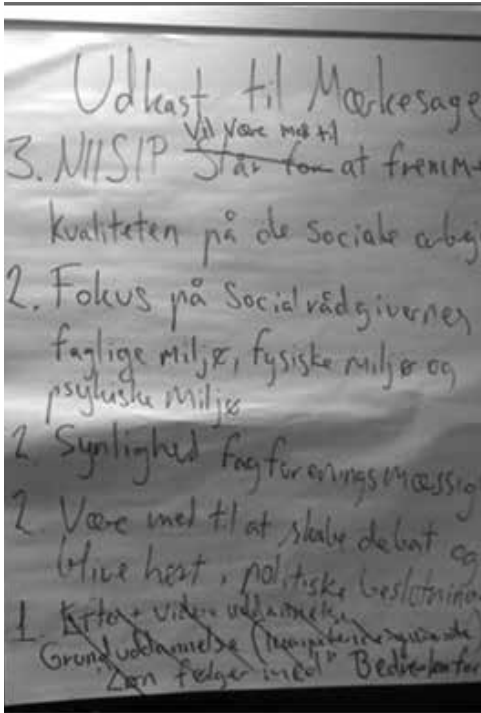 Udkast til Mærkesage
Vil være med til
3. NIISIP Står for at fremm-
kvaliteten på de sociale arbej
2. Fokus på Socialrådgivernes
faglige miljø, fysiske miljø og
psykiske miljø
2. Synlighed fagforeningsmæssig
2. Være med til at skabe debat og
blive hørt i politiske beslutning
1. Efter + videre uddannelse
Grunduddannelse
"Løn følger med"